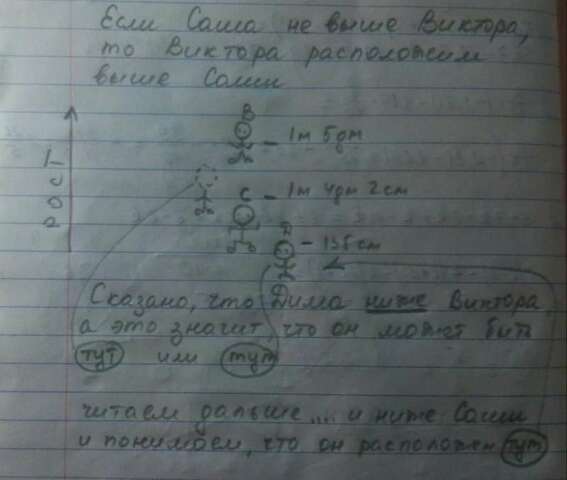 Если Саша не выше Виктора,
то Виктора расположим
выше Саши
В
1м 5дм
РОСТ
С
1м 4дм 2см
Д
135см
Сказано, что Дима ниже Виктора,
а это значит, что он может быть
тут или тут
читаем дальше ... и ниже Саши
и понимаем, что он расположен тут